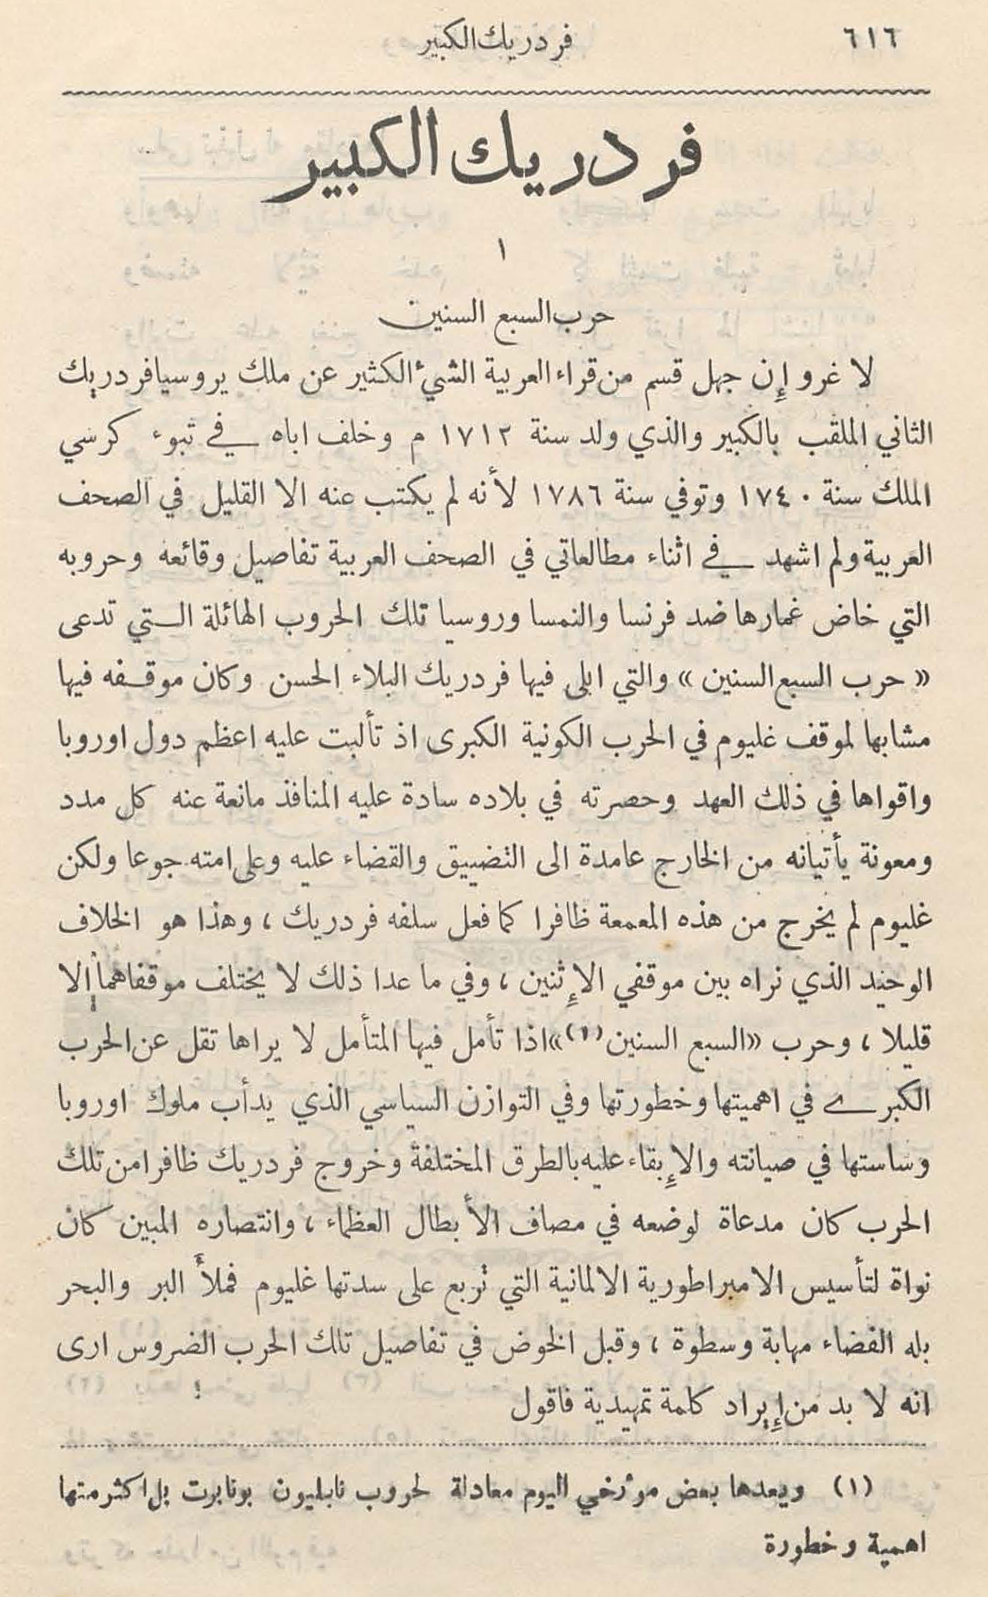 ٦١٦
فردريك الكبير
فردريك الكبير
١
حرب السبع السنين
لا غرو إن جهل قسم من قراء العربية الشيء الكثير عن ملك پروسيا فردريك
الثاني الملقب بالكبير والذي ولد سنة ١٧١٢ م وخلف اباه في تبوء كرسي
الملك سنة ١٧٤٠ وتوفي سنة ١٧٨٦ لأنه لم يكتب عنه الا القليل في الصحف
العربية ولم اشهد في اثناء مطالعاتي في الصحف العربية تفاصيل وقائعه وحروبه
التي خاض غمارها ضد فرنسا والنمسا وروسيا تلك الحروب الهائلة التي تدعى
« حرب السبع السنين » والتي ابلى فيها فردريك البلاء الحسن وكان موقفه فيها
مشابها لموقف غليوم في الحرب الكونية الكبرى اذ تألبت عليه اعظم دول اوروبا
واقواها في ذلك العهد وحصرته في بلاده سادة عليه المنافذ مانعة عنه كل مدد
ومعونة يأتيانه من الخارج عامدة الى التضييق والقضاء عليه وعلى امته جوعا ولكن
غليوم لم يخرج من هذه المعمعة ظافرا كما فعل سلفه فردريك ، وهذا هو الخلاف
الوحيد الذي نراه بين موقفي الإثنين ، وفي ما عدا ذلك لا يختلف موقفاهما إلا
قليلا ، وحرب «السبع السنين (١)» اذا تأمل فيها المتأمل لا يراها تقل عن الحرب
الكبرى في اهميتها وخطورتها وفي التوازن السياسي الذي يدأب ملوك اوروبا
وساستها في صيانته والإبقاء عليه بالطرق المختلفة وخروج فردريك ظافرا من تلك
الحرب كان مدعاة لوضعه في مصاف الأبطال العظماء ، وانتصاره المبين كان
نواة لتأسيس الامبراطورية الالمانية التي تربع على سدتها غليوم فملأ البر والبحر
بله الفضاء مهابة وسطوة ، وقبل الخوض في تفاصيل تلك الحرب الضروس ارى
انه لا بد من إيراد كلمة تمهيدية فاقول
(١) ويعدها بعض مؤرخي اليوم معادلة لحروب نابليون بونابرت بل اكثر منها
اهمية وخطورة